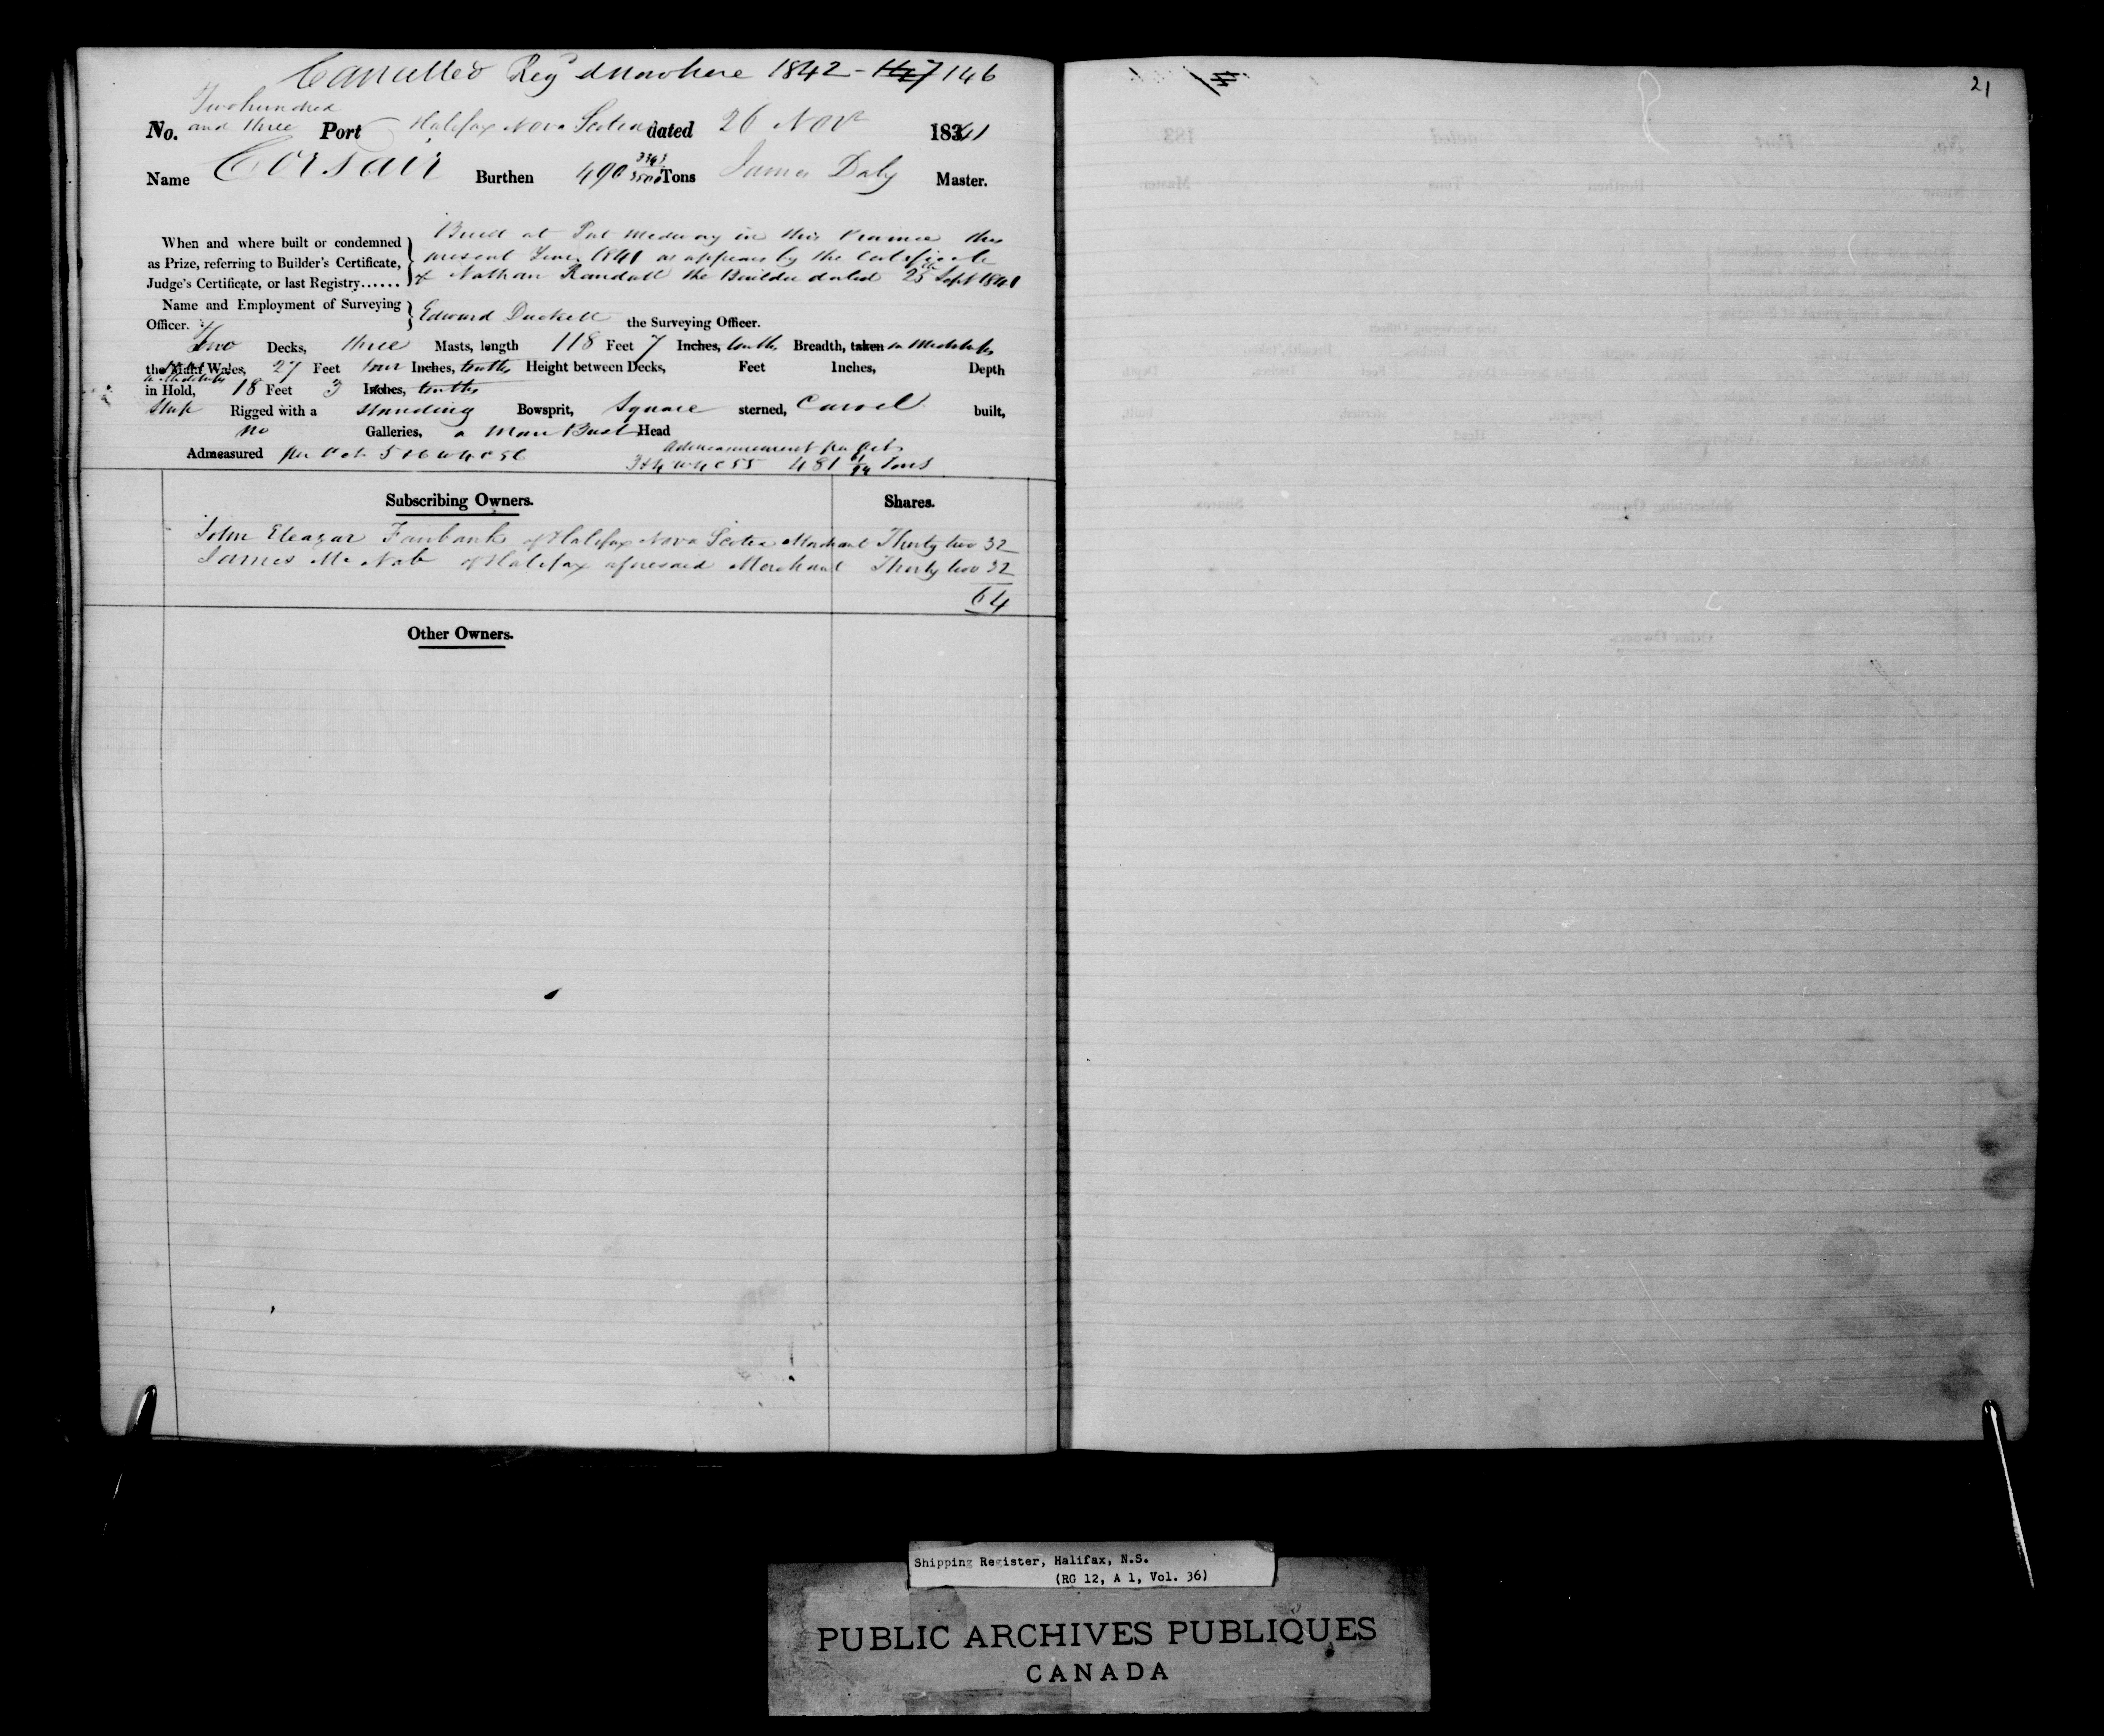 Cancelled Reg'd Anewhere 1842 - 147 146
21
Two hundred
No. and three Port Halifax Nova Scotia dated 26 Nov 1841
Name Corsair Burthen 490 3343/3500 Tons James Daly Master.
Built at Port Medway in this Province the
When and where built or condemned present Year 1841 as appears by the Certificate
as Prize, referring to Builder's Certificate, of Nathan Randall the Builder dated 25th Sept 1841
Judge's Certificate, or last Registry......
Name and Employment of Surveying
Officer. Edward Duckett the Surveying Officer.
Two Decks, three Masts, length 118 Feet 7 Inches, tenths, Breadth, taken in Midships
the Main Wales, 27 Feet four Inches, tenths Height between Decks, Feet Inches, Depth
in Hold, 18 Feet 3 Inches, tenths
Ship Rigged with a standing Bowsprit, Square sterned, Carvel built,
no Galleries, a Man Bust Head
Admeasured per Act 5 & 6 W 4 C 56 Admeasurement per Act
3 & 4 W 4 C 55 481 /94 Tons
Subscribing Owners. Shares.
John Eleazar Fairbanks of Halifax Nova Scotia Merchant Thirty two 32
James McNab of Halifax aforesaid Merchant Thirty two 32
64
Other Owners.
Shipping Register, Halifax, N.S.
(RG 12, A 1, Vol. 36)
PUBLIC ARCHIVES PUBLIQUES
CANADA